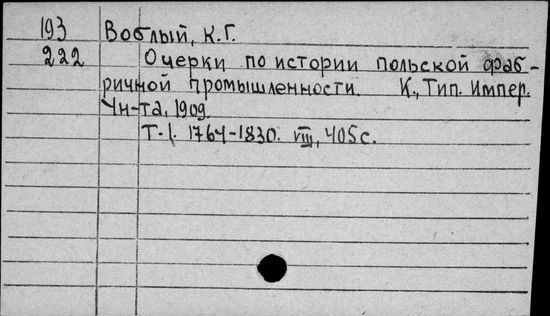 193 Воблый, К.Г.
222 Очерки по истории польской фаб-
ричной промышленности. К., Тип. Импер.
Ун-та, 1909.
Т. I. 1764-1830. VIII, 405 с.